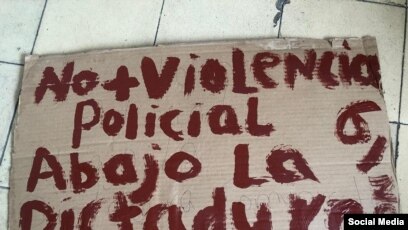 No + Violencia
Policial
Abajo La
Dictadura
Social Media